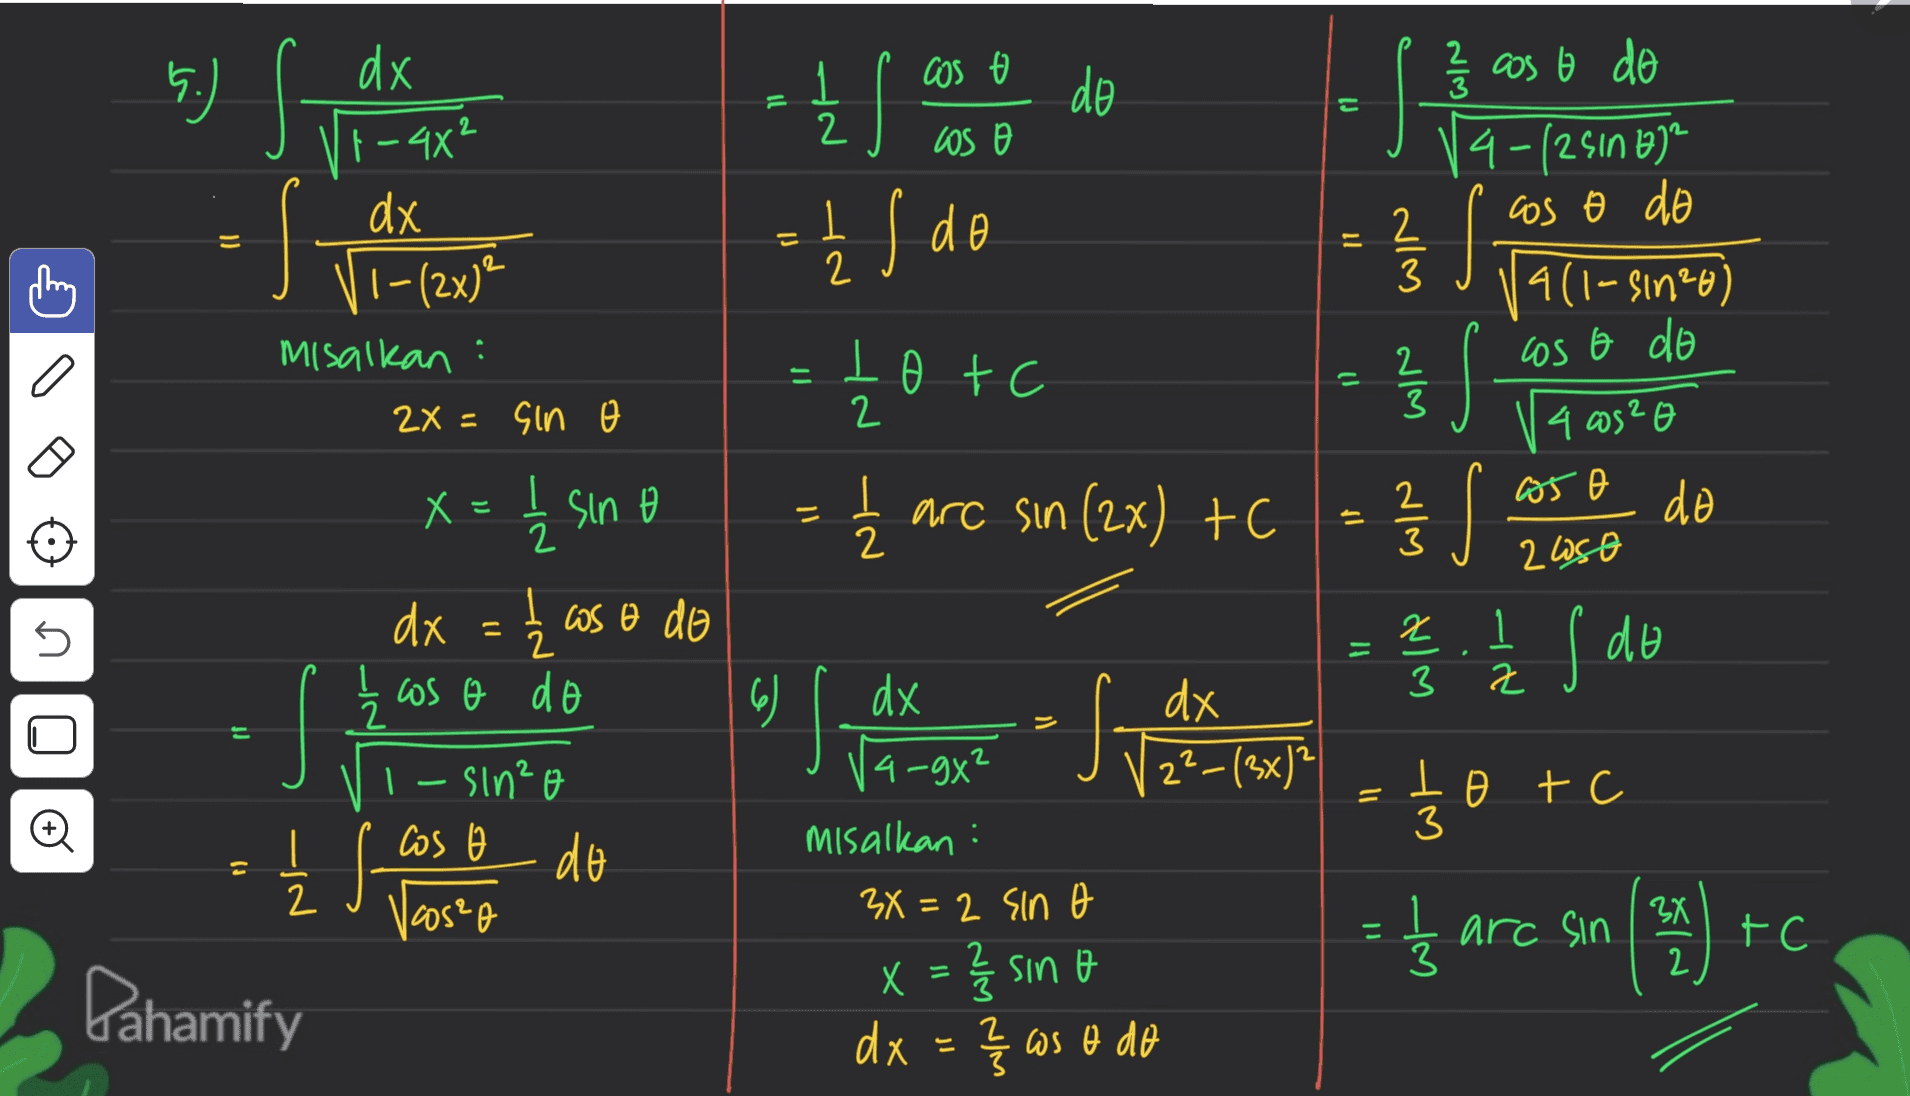 5.) ∫ dx / √(1-4x²)
= ∫ dx / √(1-(2x)²)
Misalkan :
2x = sin θ
x = 1/2 sin θ
dx = 1/2 cos θ dθ
= ∫ 1/2 cos θ dθ / √(1 - sin²θ)
= 1/2 ∫ cos θ / √(cos²θ) dθ
= 1/2 ∫ cos θ / cos θ dθ
= 1/2 ∫ dθ
= 1/2 θ + C
= 1/2 arc sin (2x) + C
6) ∫ dx / √(4-9x²) = ∫ dx / √(2²-(3x)²)
Misalkan :
3x = 2 sin θ
x = 2/3 sin θ
dx = 2/3 cos θ dθ
= ∫ 2/3 cos θ dθ / √(4-(2sin θ)²)
= 2/3 ∫ cos θ dθ / √(4(1-sin²θ))
= 2/3 ∫ cos θ dθ / √(4 cos²θ)
= 2/3 ∫ cos θ / 2 cos θ dθ
= 2/3 . 1/2 ∫ dθ
= 1/3 θ + C
= 1/3 arc sin (3x/2) + C
Pahamify